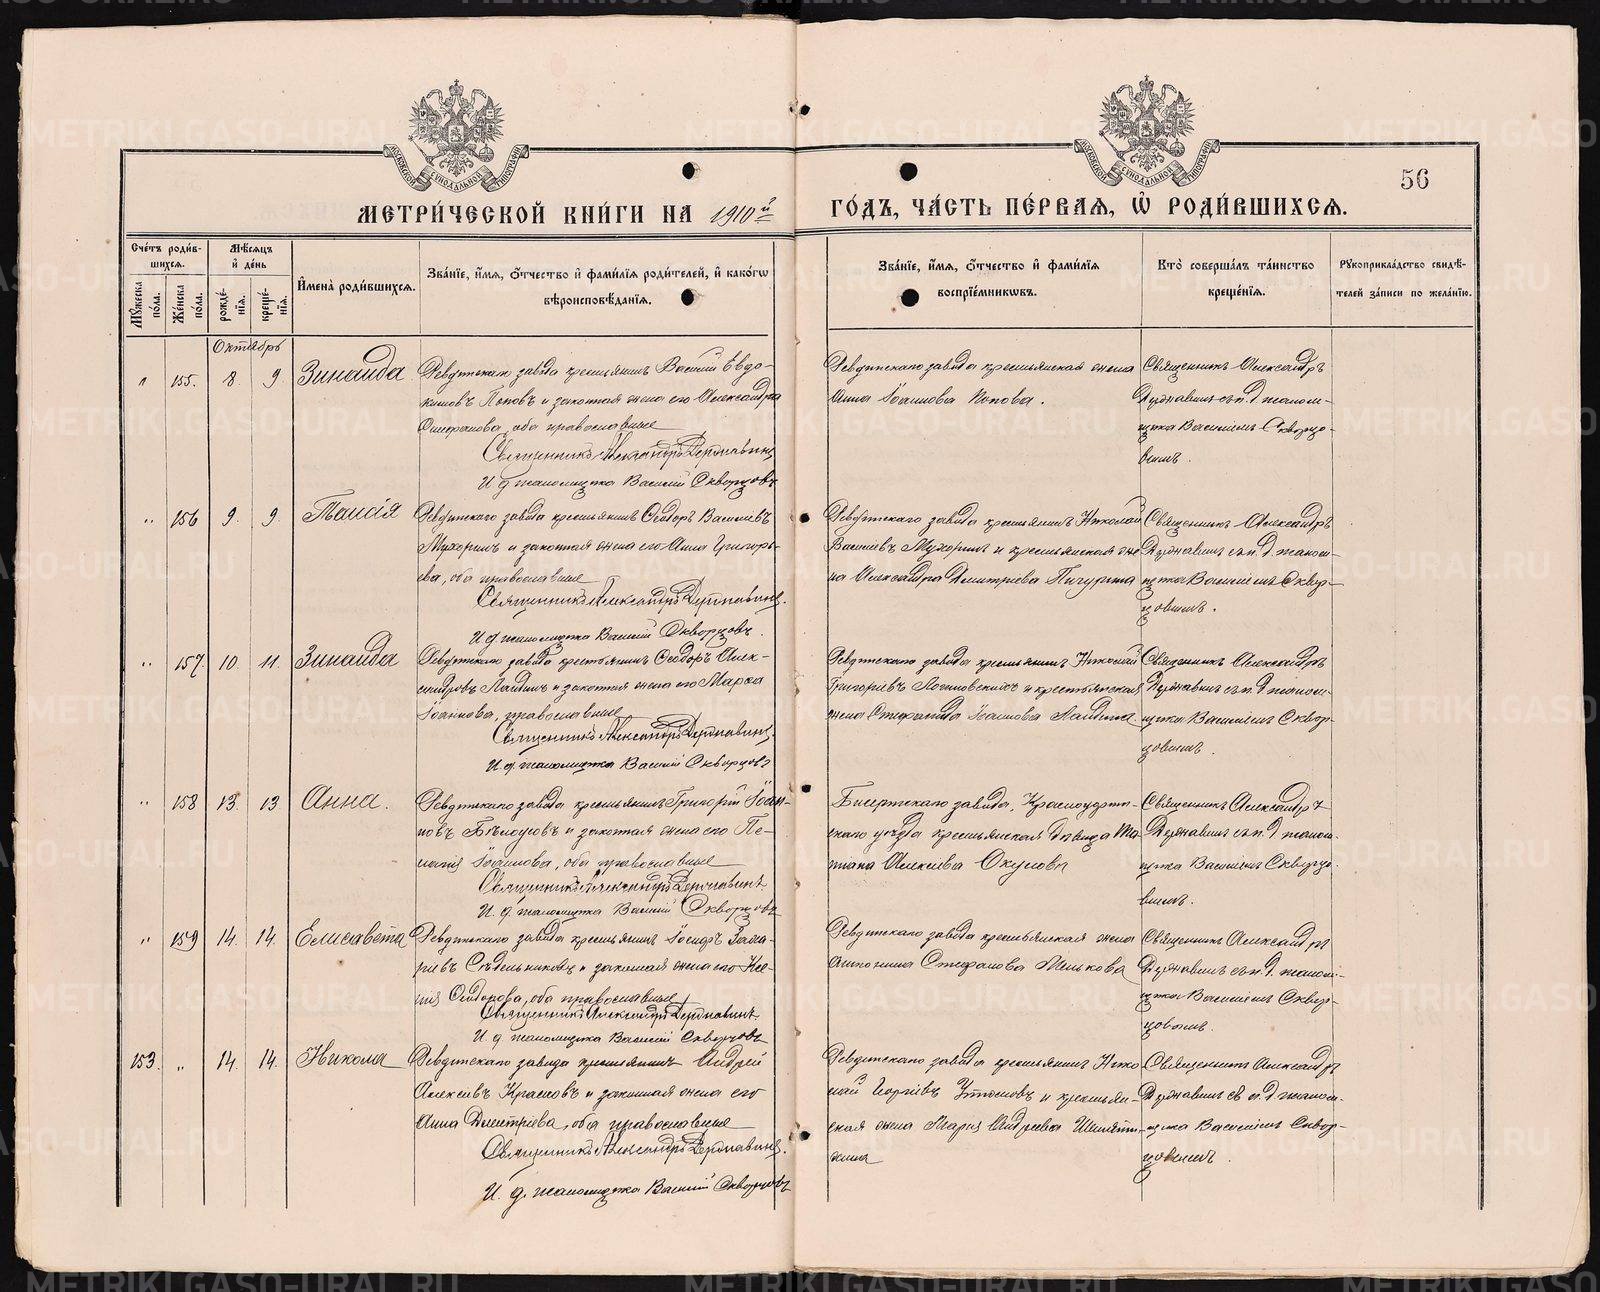 МЕТРИ́ЧЕСКОЙ КНИ́ГИ НА 1910й ГО́ДЪ, ЧА́СТЬ ПЕ́РВАЯ, Ѡ҆ РОДИ́ВШИХСЯ.
56
Сче́тъ роди́в-
шихся.
Мꙋ́жеска по́ла.
Же́нска по́ла.
Мѣ́сяцъ и҆ де́нь
рожде́нїя.
креще́нїя.
И҆мена̀ роди́вшихся.
Зва́нїе, и҆́мя, ѻ҆́тчество и҆ фами́лїя роди́телей, и҆ како́гѡ
вѣроисповѣ́данїя.
Зва́нїе, и҆́мя, ѻ҆́тчество и҆ фами́лїя
воспрїе́мникѡвъ.
Кто̀ соверша́лъ та́инство
креще́нїя.
Рꙋкоприкла́дство свидѣ́-
телей за́писи по жела́нїю.
Октябрь
" 155. 8. 9 Зинаида
Ревдинскаго завода крестьянинъ Василій Евдо-
кимовъ Поповъ и законная жена его Александра
Стефанова, оба православные
Священникъ Александръ Державинъ
И. д. псаломщика Василій Скворцовъ
Ревдинскаго завода крестьянская жена
Анна Іоаннова Попова.
Священникъ Александръ
Державинъ съ и. д. псалом-
щика Василіемъ Скворцо-
вымъ.
" 156 9. 9. Таисія
Ревдинскаго завода крестьянинъ Ѳеодоръ Василіевъ
Мухоринъ и законная жена его Анна Григорь-
ева, оба православные
Священникъ Александръ Державинъ.
И. д. псаломщика Василій Скворцовъ.
Ревдинскаго завода крестьянинъ Николай
Василіевъ Мухоринъ и крестьянская же-
на Александра Димитріева Пичугина
Священникъ Александръ
Державинъ съ и. д. псалом-
щика Василіемъ Сквор-
цовымъ.
" 157 10. 11. Зинаида
Ревдинскаго завода крестьянинъ Ѳеодоръ Алек-
сандровъ и законная жена его
Іоаннова, православные
Священникъ Александръ Державинъ.
И. д. псаломщика Василій Скворцовъ
Ревдинскаго завода крестьянинъ Николай
Григоріевъ Логиновскихъ и крестьянская
жена Стефанида Іоаннова
Священникъ Александръ
Державинъ съ и. д. псалом-
щика Василіемъ Сквор-
цовымъ.
" 158 13. 13 Анна.
Ревдинскаго завода крестьянинъ Григорій Іоан-
новъ Бѣлоусовъ и законная жена его Пе-
лагія Іоаннова, оба православные
Священникъ Александръ Державинъ
И. д. псаломщика Василій Скворцовъ
Бисертскаго завода, Красноуфим-
скаго уѣзда крестьянская дѣвица Та-
тіана Алексіева Окулова
Священникъ Александръ
Державинъ съ и. д. псалом-
щика Василіемъ Скворцо-
вымъ.
" 159 14. 14. Елисавета
Ревдинскаго завода крестьянинъ Іосифъ Заха-
ріевъ Сѣдельниковъ и законная жена его Ксе-
нія Ѳеодорова, оба православные
Священникъ Александръ Державинъ
И. д. псаломщика Василій Скворцовъ
Ревдинскаго завода крестьянская жена
Антонина Стефанова Мелькова
Священникъ Александръ
Державинъ съ и. д. псалом-
щика Василіемъ Сквор-
цовымъ.
153. " 14. 14. Никола
Ревдинскаго завода крестьянинъ Андрей
Алексіевъ Красновъ и законная жена его
Анна Димитріева, оба православные
Священникъ Александръ Державинъ.
И. д. псаломщика Василій Скворцовъ
Ревдинскаго завода крестьянинъ Нико-
лай Георгіевъ и крестьян-
ская жена Марія Андреева
Священникъ Александръ
Державинъ съ и. д. псалом-
щика Василіемъ Сквор-
цовымъ.
METRIKI.GASO-URAL.RU